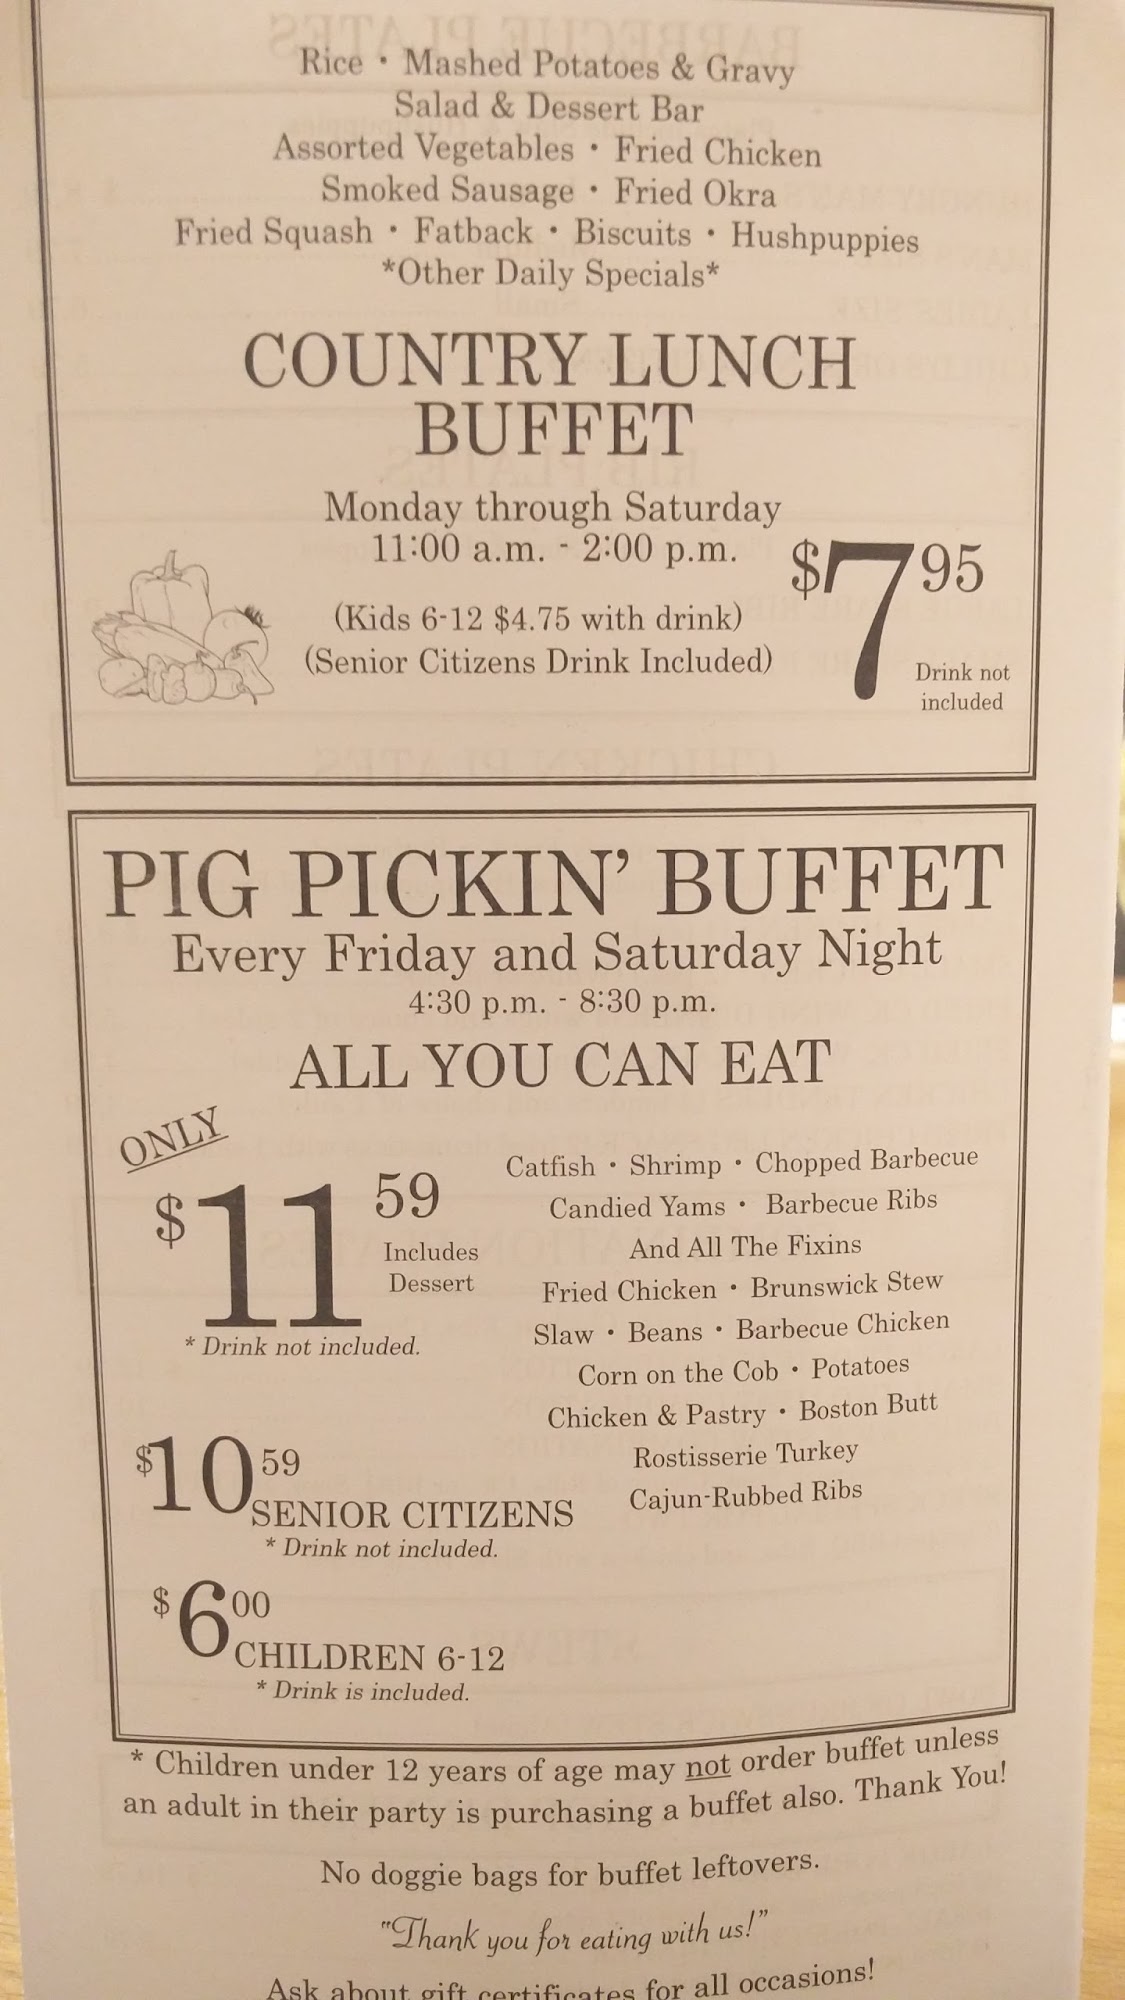 Rice • Mashed Potatoes & Gravy
Salad & Dessert Bar
Assorted Vegetables • Fried Chicken
Smoked Sausage • Fried Okra
Fried Squash • Fatback • Biscuits • Hushpuppies
*Other Daily Specials*
COUNTRY LUNCH
BUFFET
Monday through Saturday
11:00 a.m. - 2:00 p.m.
(Kids 6-12 $4.75 with drink)
(Senior Citizens Drink Included)
$7 95
Drink not
included
PIG PICKIN' BUFFET
Every Friday and Saturday Night
4:30 p.m. - 8:30 p.m.
ALL YOU CAN EAT
ONLY
$11 59
Includes
Dessert
* Drink not included.
$10 59
SENIOR CITIZENS
* Drink not included.
$6 00
CHILDREN 6-12
* Drink is included.
Catfish • Shrimp • Chopped Barbecue
Candied Yams • Barbecue Ribs
And All The Fixins
Fried Chicken • Brunswick Stew
Slaw • Beans • Barbecue Chicken
Corn on the Cob • Potatoes
Chicken & Pastry • Boston Butt
Rostisserie Turkey
Cajun-Rubbed Ribs
* Children under 12 years of age may not order buffet unless
an adult in their party is purchasing a buffet also. Thank You!
No doggie bags for buffet leftovers.
"Thank you for eating with us!"
Ask about gift certificates for all occasions!